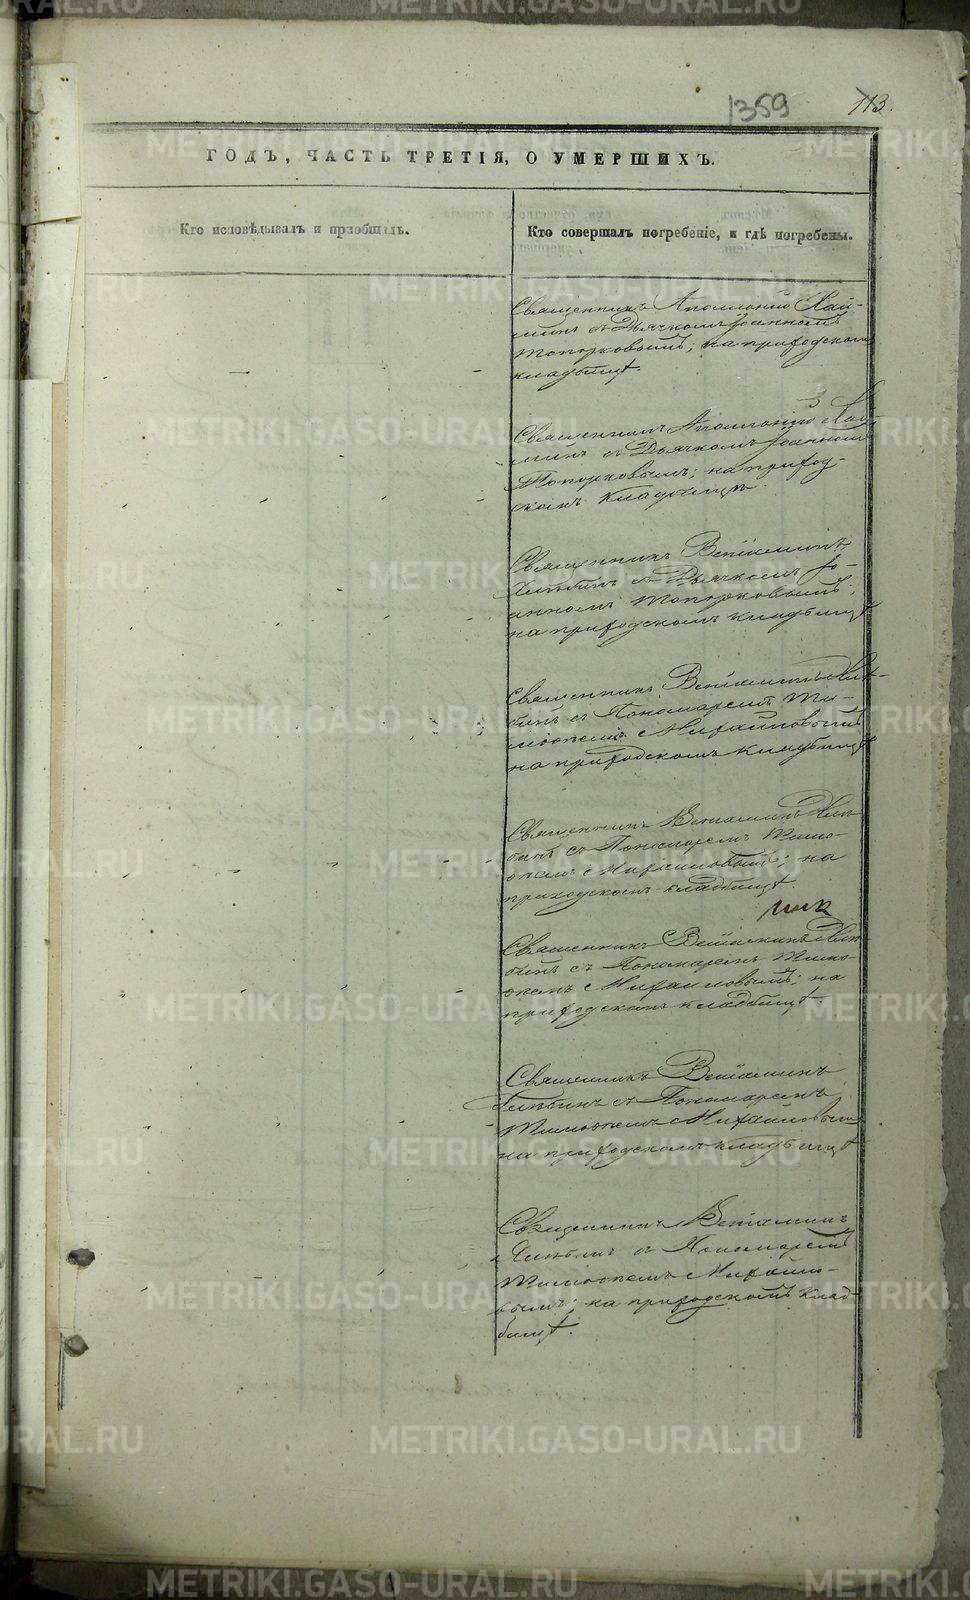 1359
113.
ГОДЪ, ЧАСТЬ ТРЕТІЯ, О УМЕРШИХЪ.
Кто исповѣдывалъ и пріобщалъ.
Кто совершалъ погребеніе, и гдѣ погребены.
Священникъ Аполлоній
съ Дьячкомъ Іоанномъ
Топорковымъ; на приходскомъ
кладбищѣ.
Священникъ Аполлоній
съ Дьячкомъ Іоанномъ
Топорковымъ; на приход-
скомъ кладбищѣ.
Священникъ Веніаминъ
съ Дьячкомъ Іо-
анномъ Топорковымъ;
на приходскомъ кладбищѣ
Священникъ Веніаминъ
съ Пономаремъ Ти-
моѳеемъ Михайловымъ
на приходскомъ кладбищѣ
Священникъ Веніаминъ
съ Пономаремъ Тимо-
ѳеемъ Михаиловымъ; на
приходскомъ кладбищѣ.
Священникъ Веніаминъ
съ Пономаремъ Тимо-
ѳеемъ Михаиловымъ; на
приходскомъ кладбищѣ
Священникъ Веніаминъ
съ Пономаремъ
Тимоѳеемъ Михайловымъ
на приходскомъ кладбищѣ
Священникъ Веніаминъ
съ Пономаремъ
Тимоѳеемъ Михайло-
вымъ; на приходскомъ клад-
бищѣ.
METRIKI.GASO-URAL.RU